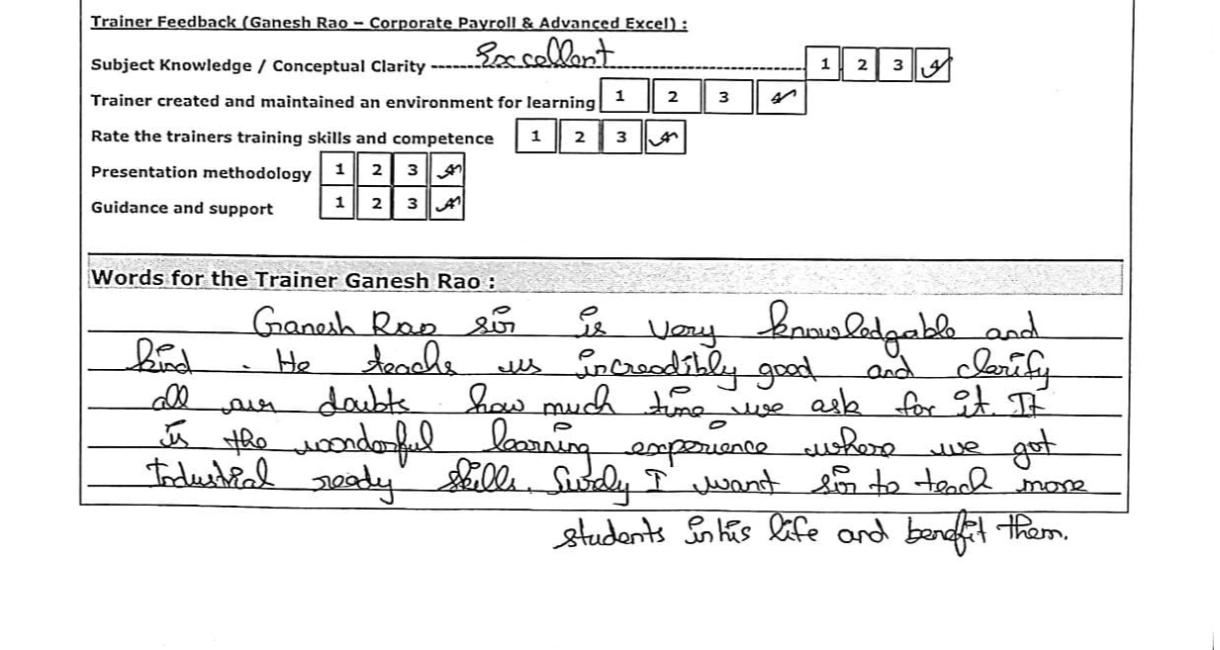 Trainer Feedback (Ganesh Rao – Corporate Payroll & Advanced Excel) :
Subject Knowledge / Conceptual Clarity ------Excellent------------------------ 1 2 3 4
Trainer created and maintained an environment for learning 1 2 3 4
Rate the trainers training skills and competence 1 2 3 4
Presentation methodology 1 2 3 4
Guidance and support 1 2 3 4
Words for the Trainer Ganesh Rao :
Ganesh Rao sir is very knowledgable and
kind. He teachs us increadibly good and clarify
all our doubts how much time we ask for it. It
is the wonderful learning experience where we got
Industrial ready skills. Surely I want sir to teach more
students in his life and benefit them.